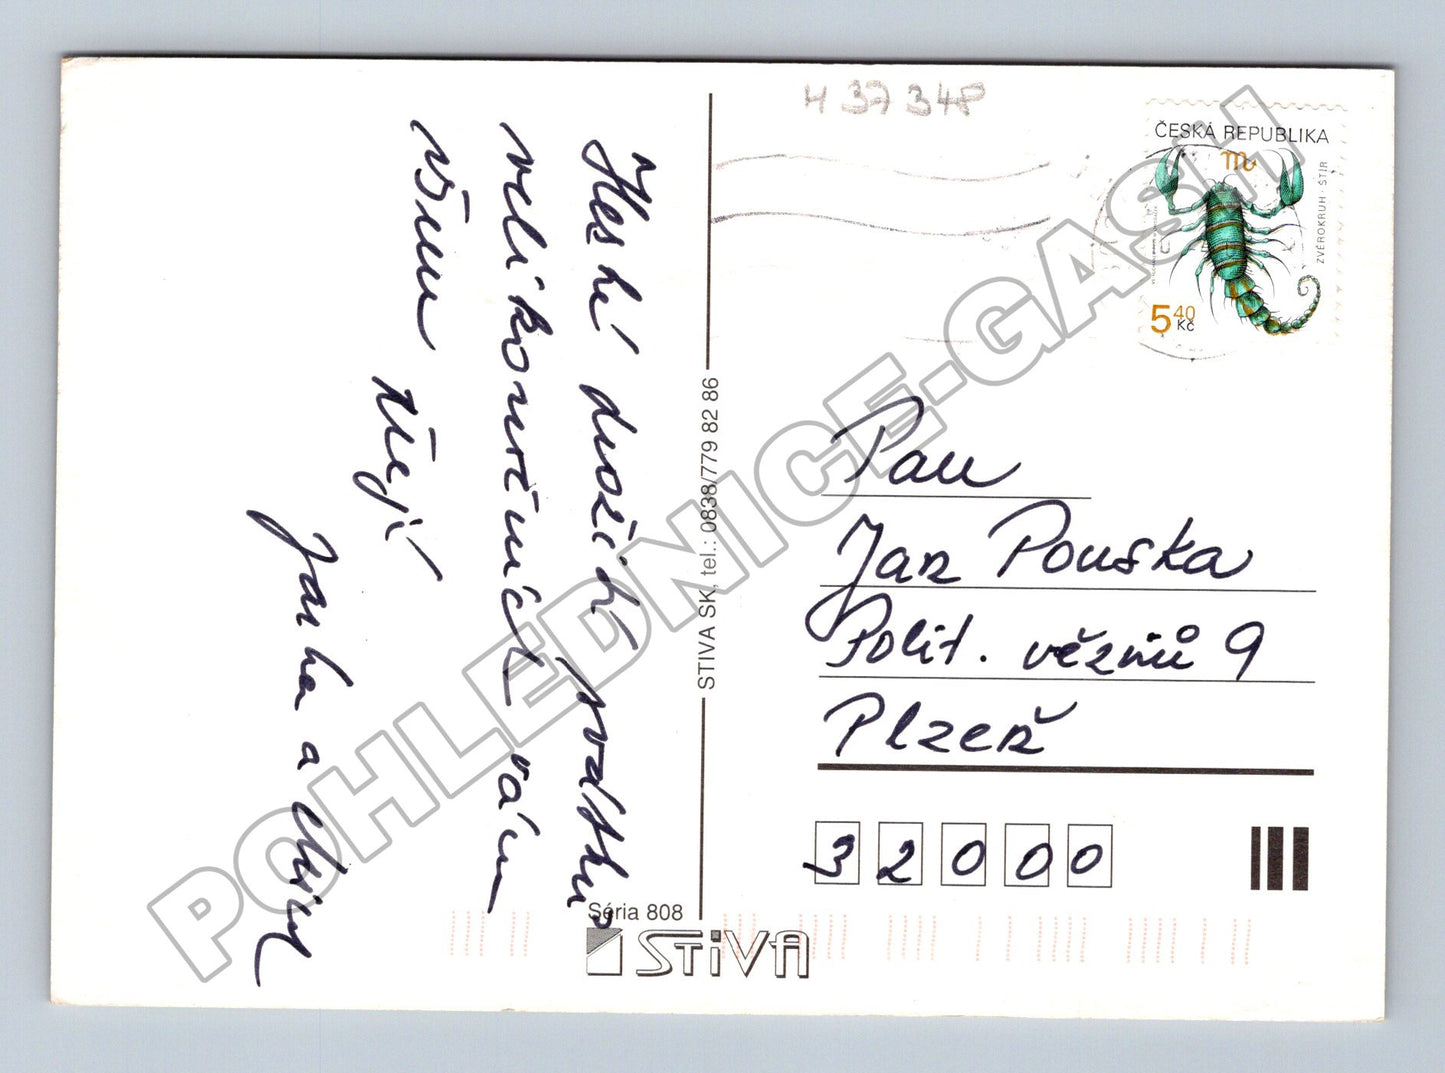 Heské prožití svátků
velikonočních Vám
všem přejí
Jarka a Mirek
H 37 348
ČESKÁ REPUBLIKA
ZVĚROKRUH · ŠTÍR
5 40 Kč
STIVA SK, tel.: 0838/779 82 86
Pan
Jan Pouska
Polit. vězňů 9
Plzeň
32000
Séria 808
STIVA
POHLEDNICE-GASH